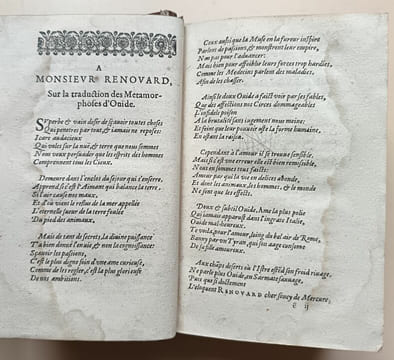 A
MONSIEVR RENOVARD,
Sur la traduction des Metamor-
phoses d'Ouide.
SVperbe & vain desir de sçauoir toutes choses
Qui penetres par tout, & iamais ne reposes:
Icare audacieux
Qui voles sur la nuë, & terre que nous sommes
Nous veux persuader que les esprits des hommes
Comprennent tous les Cieux.
Demeure dans l'enclos du sejour qui t'enserre,
Apprend, si c'est l'Aimant qui balance la terre,
Si l'air cause nos maux,
Et d'où vient le reflus de la mer appellée
L'eternelle sueur de la terre foulée
Du pied des animaux.
Mais de tant de secrets, la diuine puissance
T'a bien donné l'enuie, & non la cognoissance:
Sçauoir les passions,
C'est le plus digne soin d'vne ame curieuse,
Comme de les regler, c'est la plus glorieuse
De nos ambitions.
Ceux aussi que la Muse en sa fureur inspire
Parlent de passions, & monstrent leur empire,
Non pas pour l'aduancer:
Mais bien pour affoiblir leurs forces trop hardies,
Comme les Medecins parlent des maladies,
Afin de les chasser.
Ainsi le doux Ouide a faict voir par ses fables,
Que des affections nos Circes dommageables
L'infidele poison
A la brutalité sans iugement nous meine;
Et feint que leur pouuoir oste la forme humaine,
En ostant la raison.
Cependant à l'amour il se trouue sensible,
Mais si c'est vne erreur elle est bien remissible,
Nous en sommes tous faicts:
Amour par qui la vie en delices abonde,
Et dont les animaux, les hommes, & le monde
Ne sont que les effects.
Doux & subtil Ouide, Ame la plus polie
Qui iamais apparust dans l'ingrate Italie,
Ouide mal-heureux,
Te voila, pour l'amour, loing du bel air de Rome,
Banny par vn Tyran, qui son aage consomme
De sa fille amoureux.
Aux champs deserts où l'Istre estẽd son froid riuage,
Ne parle plus Ouide, en Sarmate sauuage,
Puis que si doctement
L'eloquent RENOVARD cher soucy de Mercure,
ẽ ij